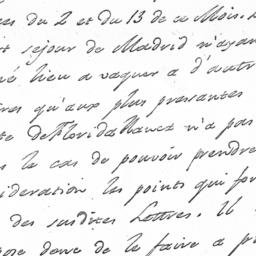 es du 2 et du 13 de ce Mois.
rt séjour de Madrid n'ayan
né lieu a vaquer a d'autr
res qu'aux plus pressantes
te de Florida Blanca n'a pas
s le cas de pouvoir prendre
sideration les points qui for
des susdites Lettres. Il
pose donc de le faire a p